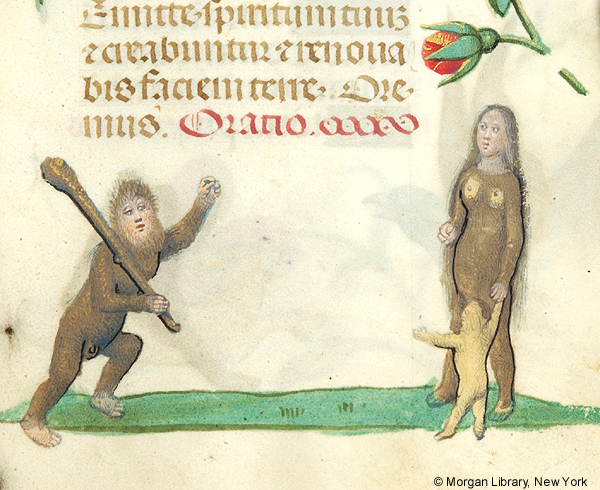 Emitte spiritum tuuʒ
⁊ creabuntur ⁊ renoua
bis faciem terre. Ore-
mus. Oratio.
© Morgan Library, New York